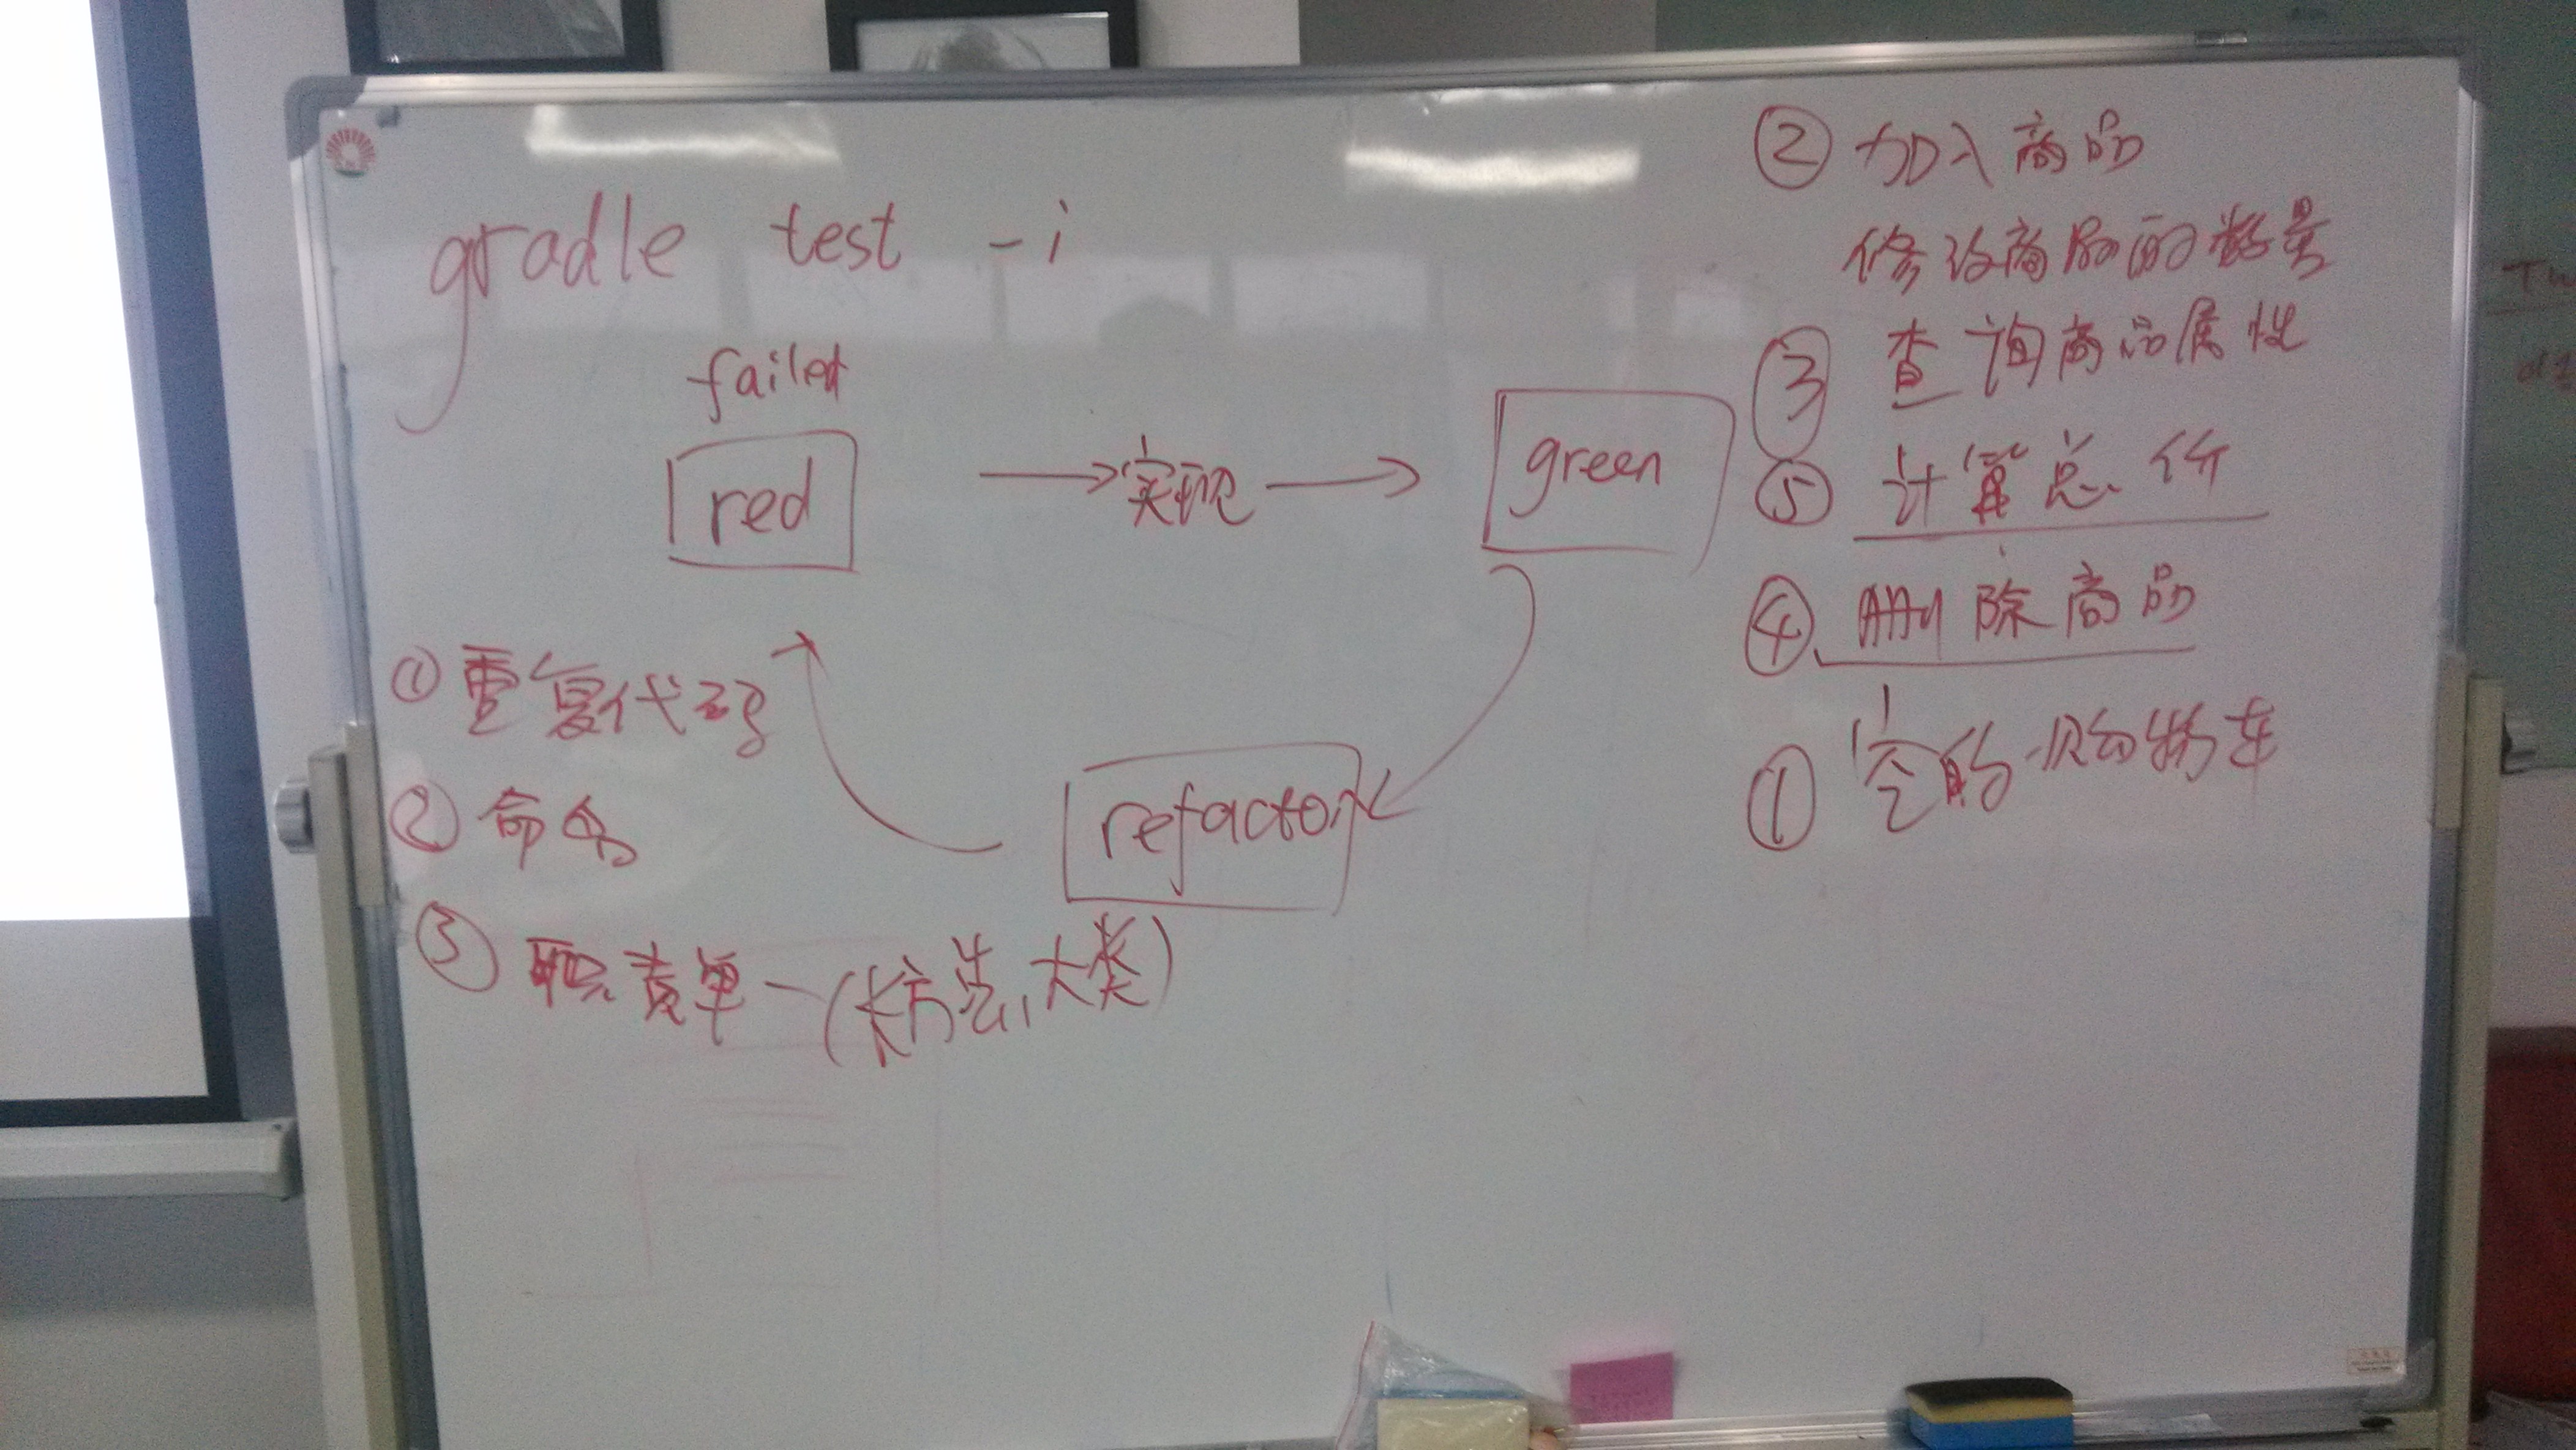 gradle test -i
failed
red → 实现 → green
refactor
① 重复代码
② 命名
③ 职责单一(长方法,大类)
② 加入商品
修改商品的数量
③ 查询商品属性
⑤ 计算总价
④ 删除商品
① 空的购物车